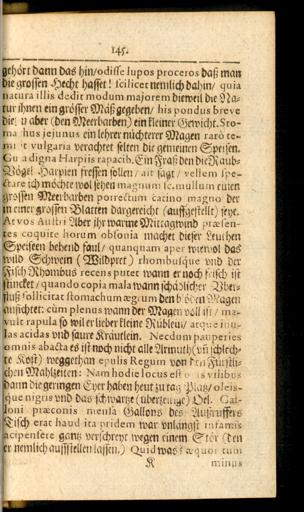 145.
gehört dann das hin/odisse lupos proceros daß man
die grossen Hecht hasset! scilicet nemlich dahin/ quia
natura illis dedit modum majorem dieweil die Na-
tur ihnen ein grösser Mäß gegeben/ his pondus breve
aber (den Meerbarben) ein kleiner Gewicht. Sto-
ma hus jejunus ein lehrer nüchterer Magen rarò te-
vulgaria verachtet selten die gemeinen Speisen.
Gu a digna Harpiis rapacib. Ein Fraß den die Raub-
Vögel Harpien fressen sollen/ ait sagt/ vellem spe-
ctare ich möchte wol sehen magnum sc. mullum einen
grossen Meerbarben porrectum catino magno der
in einer grossen Blatten dargereicht (auffgestellt) seye.
At vos Austri Aber ihr warme Mittagwind præsen-
tes coquite horum obsonia machet dieser Leuthen
Speisen behend faul/ quanquam aper wiewol das
wild Schwein (Wildpret) rhombusque vnd der
Fisch Rhombus recens putet wann er noch frisch ist
stincket/ quando copia mala wann schädlicher Über-
fluß sollicitat stomachum ægrum den blöden Magen
anfichtet: cùm plenus wann der Magen voll ist/ ma-
vult rapula so wil er lieber kleine Rüblein/ atque inu-
las acidas vnd saure Kräutlein. Necdum pauperies
omnis abacta es ist noch nicht alle Armuth (vñ schlech-
te Kost) weggethan epulis Regum von den Fürstli-
chen Mahlzeiten: Nam hodie locus est ovis vilibus
dann die geringen Eyer haben heut zu tag Platz/ oleis-
que nigris vnd das schwartze (überzeitige) Oel. Gal-
loni præconis mensa Gallons des Außruffers
Tisch erat haud ita pridem war vnlängst infamis
acipensere gantz verschreyt wegen einem Stör (den
er nemlich auffstellen lassen.) Quid was? æquor tum
K minus